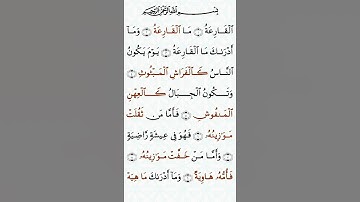 بِسْمِ ٱللَّهِ ٱلرَّحْمَٰنِ ٱلرَّحِيمِ
ٱلْقَارِعَةُ ۝ مَا ٱلْقَارِعَةُ ۝ وَمَآ
أَدْرَىٰكَ مَا ٱلْقَارِعَةُ ۝ يَوْمَ يَكُونُ
ٱلنَّاسُ كَٱلْفَرَاشِ ٱلْمَبْثُوثِ ۝
وَتَكُونُ ٱلْجِبَالُ كَٱلْعِهْنِ
ٱلْمَنفُوشِ ۝ فَأَمَّا مَن ثَقُلَتْ
مَوَٰزِينُهُۥ ۝ فَهُوَ فِى عِيشَةٍ رَّاضِيَةٍ
۝ وَأَمَّا مَنْ خَفَّتْ مَوَٰزِينُهُۥ ۝
فَأُمُّهُۥ هَاوِيَةٌ ۝ وَمَآ أَدْرَىٰكَ مَا هِيَهْ